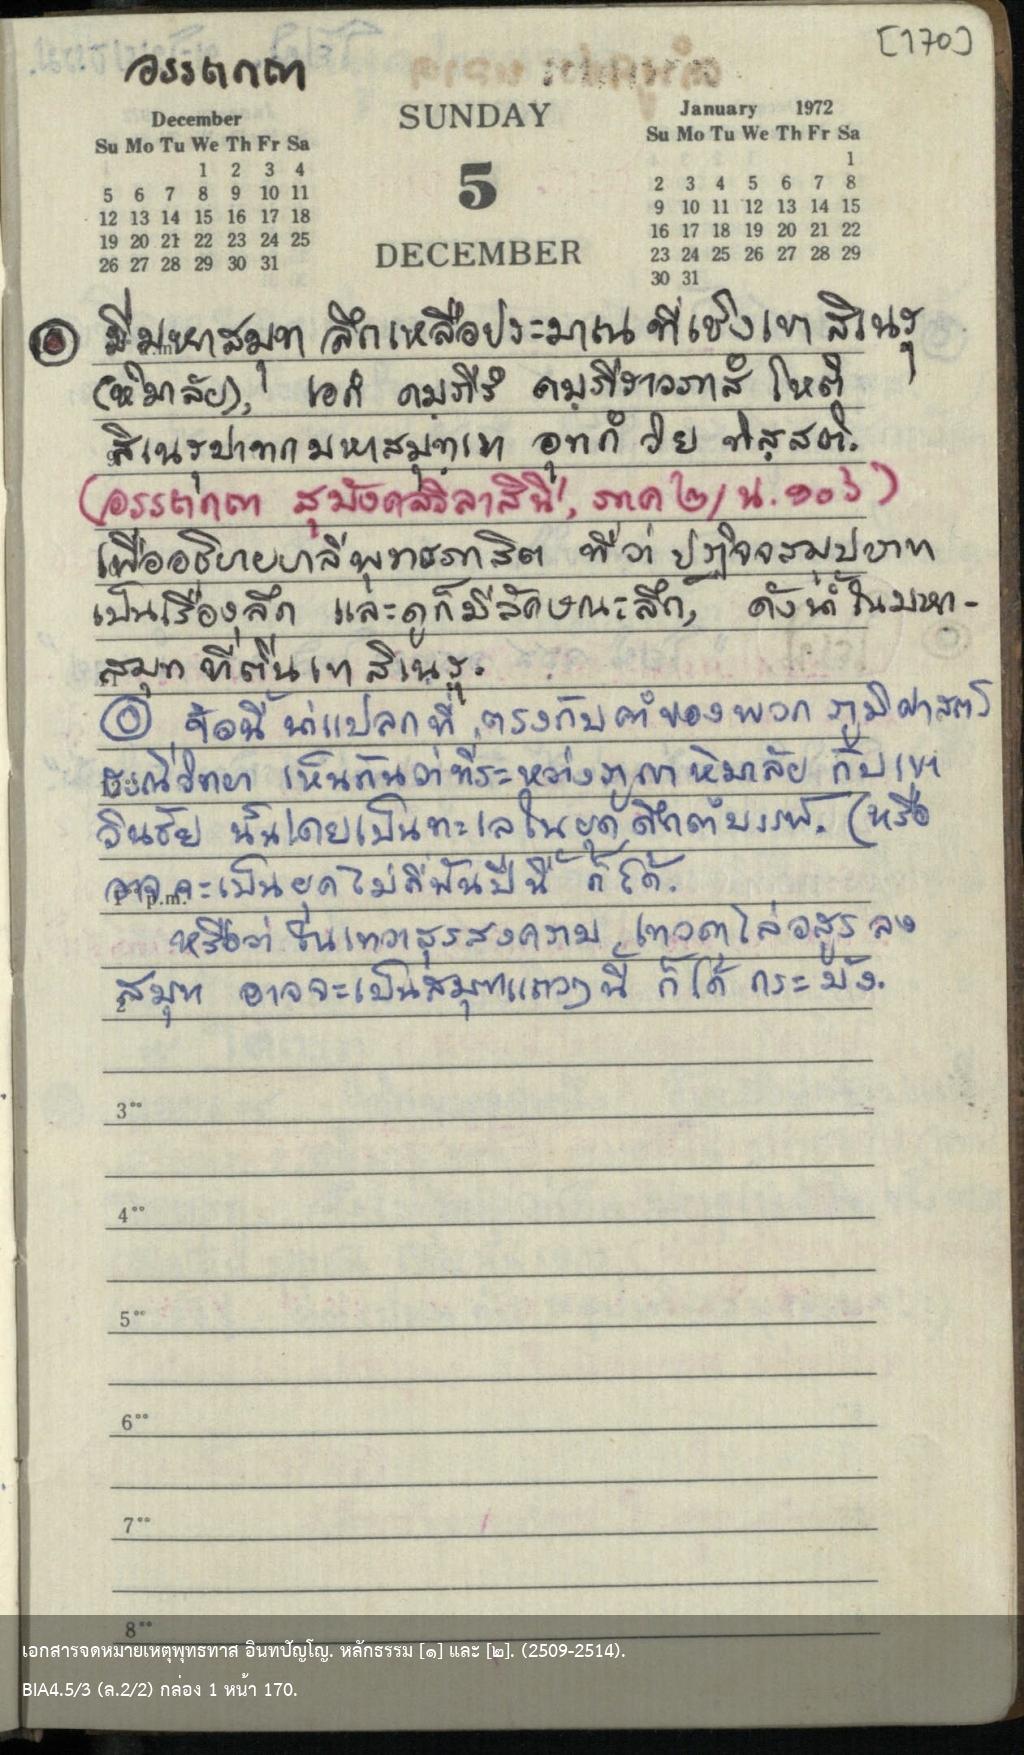 [170]
อรรถกถา
December
Su Mo Tu We Th Fr Sa
1 2 3 4
5 6 7 8 9 10 11
12 13 14 15 16 17 18
19 20 21 22 23 24 25
26 27 28 29 30 31
SUNDAY
5
DECEMBER
January 1972
Su Mo Tu We Th Fr Sa
1
2 3 4 5 6 7 8
9 10 11 12 13 14 15
16 17 18 19 20 21 22
23 24 25 26 27 28 29
30 31
มีมหาสมุท ลึกเหลือประมาณ ที่เชิงเขา สิเนรุ
(หิมาลัย), เอกํ คมฺภีรํ คมฺภีราวภาสํ โหติ
สิเนรุปาทกมหาสมุทฺเท อุทกํ วิย
(อรรถกถา สุมังคลวิลาสินี, ภาค ๒/ น. ๑๐๖)
เพื่ออธิบายบาลีพุทธภาสิต ที่ว่า ปฏิจจสมุปบาท
เป็นเรื่องลึก และดูก็มีลักษณะลึก, ดังน้ำในมหา-
สมุท ที่ตีนเขา สิเนรุ.
ข้อนี้ น่าแปลกที่ ตรงกับคำของพวก ภูมิศาสตร์
ธรณีวิทยา เห็นกันว่าที่ระหว่างภูเขาหิมาลัย กับเขา
วินชัย นั้นเคยเป็นทะเลในยุคดึกดำบรรพ์. (หรือ
อาจจะเป็นยุคไม่กี่พันปีนี้ ก็ได้.
p.m.
หรือว่า ในเทวาสุรสงคราม เทวดาไล่อสูร ลง
สมุท อาจจะเป็นสมุทแถวๆนี้ ก็ได้ กระมัง.
3°°
4°°
5°°
6°°
7°°
8°°
เอกสารจดหมายเหตุพุทธทาส อินทปัญโญ. หลักธรรม [๑] และ [๒]. (2509-2514).
BIA4.5/3 (ล.2/2) กล่อง 1 หน้า 170.